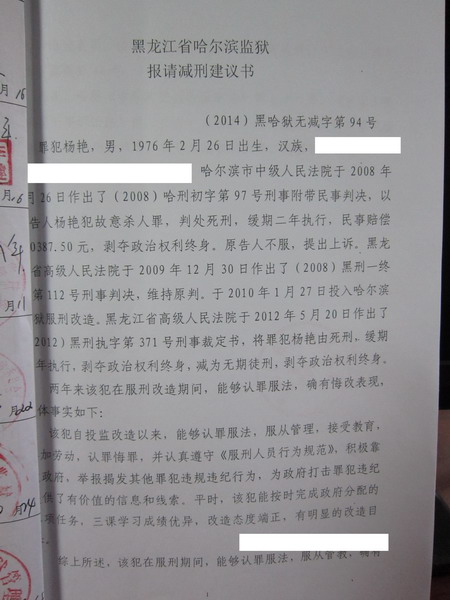 黑龙江省哈尔滨监狱
报请减刑建议书
（2014）黑哈狱无减字第94号
罪犯杨艳，男，1976年2月26日出生，汉族，
哈尔滨市中级人民法院于2008年
月26日作出了（2008）哈刑初字第97号刑事附带民事判决，以
告人杨艳犯故意杀人罪，判处死刑，缓期二年执行，民事赔偿
0387.50元，剥夺政治权利终身。原告人不服，提出上诉。黑龙
省高级人民法院于2009年12月30日作出了（2008）黑刑一终
第112号刑事判决，维持原判。于2010年1月27日投入哈尔滨
狱服刑改造。黑龙江省高级人民法院于2012年5月20日作出了
2012）黑刑执字第371号刑事裁定书，将罪犯杨艳由死刑，缓期
年执行，剥夺政治权利终身，减为无期徒刑，剥夺政治权利终身。
两年来该犯在服刑改造期间，能够认罪服法，确有悔改表现，
体事实如下：
该犯自投监改造以来，能够认罪服法，服从管理，接受教育，
加劳动，认罪悔罪，并认真遵守《服刑人员行为规范》，积极靠
政府，举报揭发其他罪犯违规违纪行为，为政府打击罪犯违纪
供了有价值的信息和线索。平时，该犯能按时完成政府分配的
项任务，三课学习成绩优异，改造态度端正，有明显的改造目
综上所述，该犯在服刑期间，能够认罪服法，服从管教，确有
1
月16
月.6
月11
月22